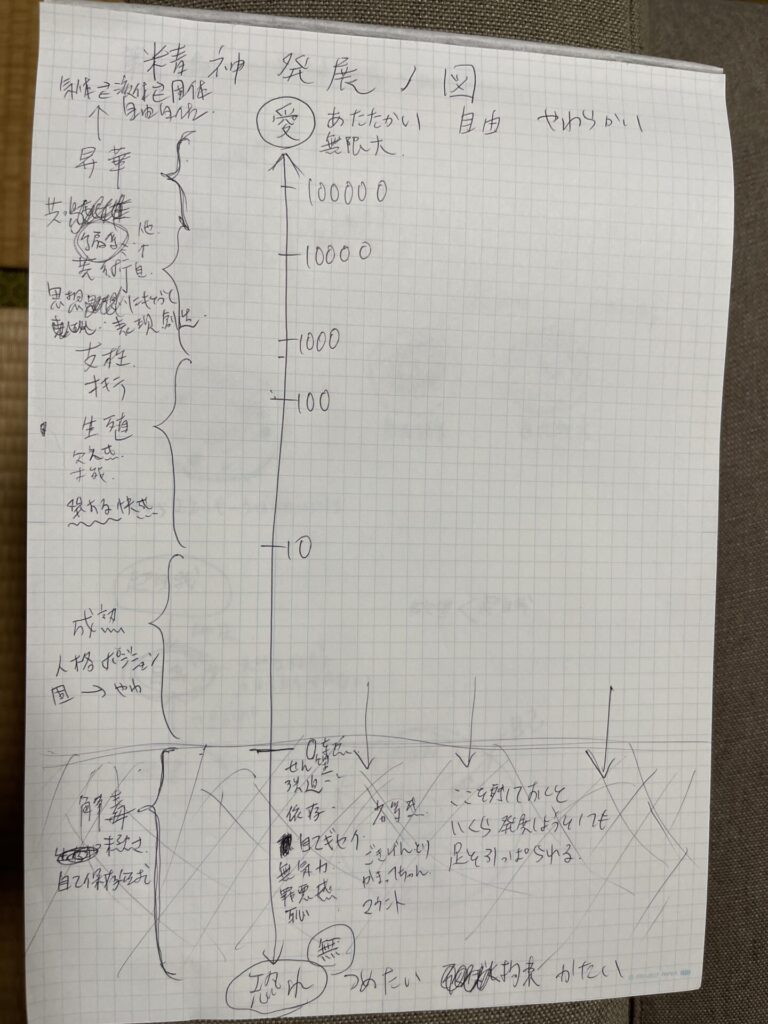 精神発展ノ図
気体⇄液体⇄固体
自由自在
昇華
愛
あたたかい 自由 やわらかい
無限大
100000
他
芸術 自
10000
思想
表現 創造
1000
支柱
100
生殖
才能
10
成熟
人格 ポジション
固 → やわ
0
せん望
強迫
解毒
依存
劣等感
ここを残しておくと
自己ギセイ
いくら発展しようとしても
無気力
ごきげんとり
足を引っぱられる。
罪悪感
かまってちゃん
自己保存
恥
マウント
無
恐れ
つめたい 拘束 かたい
PROJECT PAPER